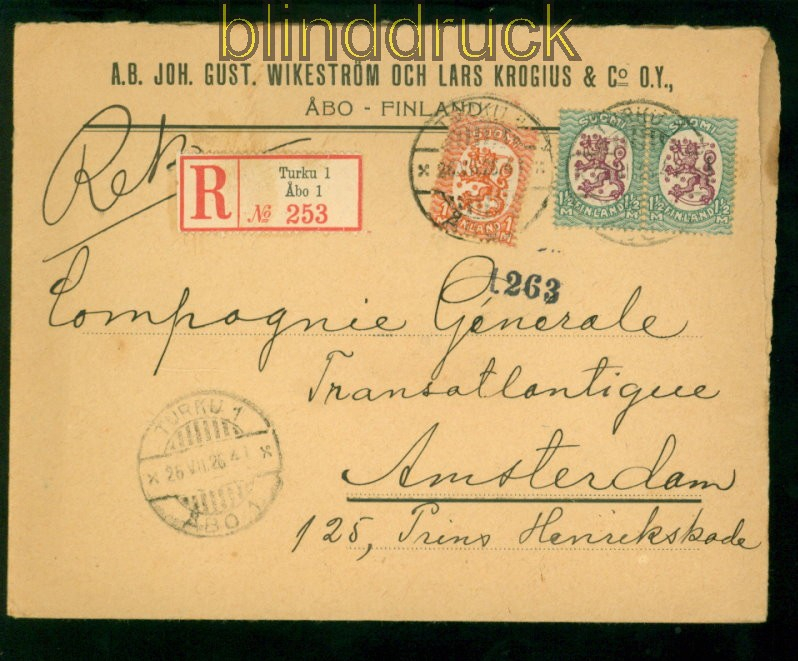 blinddruck
A.B. JOH. GUST. WIKESTRÖM OCH LARS KROGIUS & Co O.Y.,
ÅBO - FINLAND
Rek.
R
Turku 1
Åbo 1
No 253
TURKU
SUOMI
1 FINLAND 1
M
SUOMI
1½ FINLAND 1½
M M
SUOMI
1½ FINLAND 1½
M M
1263
Compagnie Générale
Transatlantique
Amsterdam
125, Prins Henrikskade
TURKU 1
25 VII.26
ÅBO 1